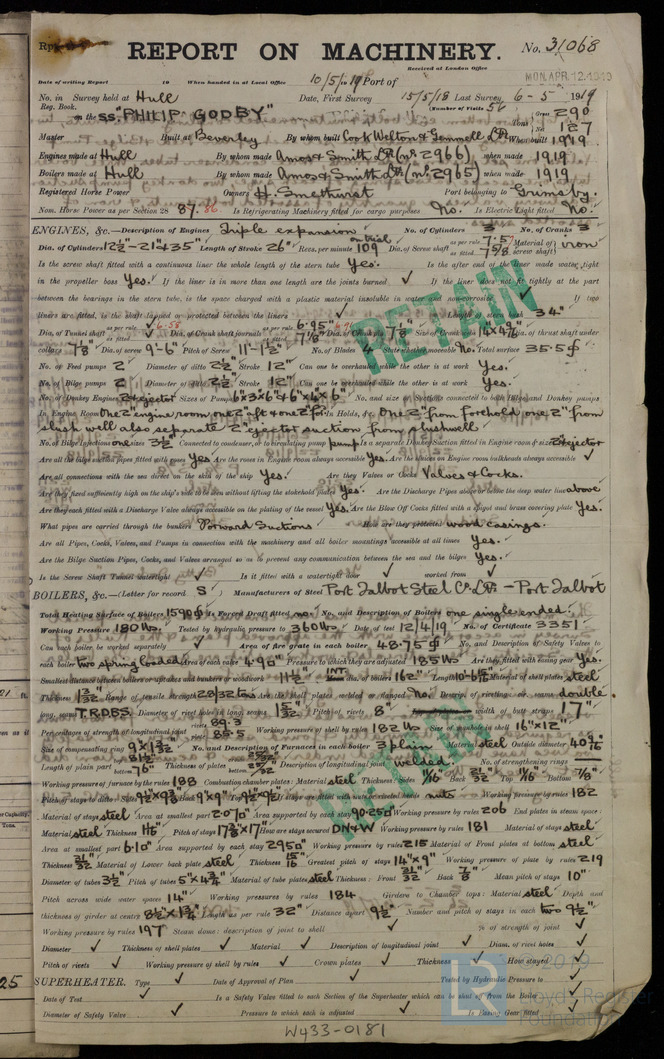 Rpt.
REPORT ON MACHINERY. No. 31068
Received at London Office
MON. APR. 12. 1919
Date of writing Report 19 When handed in at Local Office 10/5/1919 Port of
No. in Survey held at Hull Date, First Survey 15/5/18 Last Survey 6-5 1919
Reg. Book. (Number of Visits 56
on the SS. "PHILIP GODBY" Tons Gross 290 Net 127
Master Built at Beverley By whom built Cook Welton & Gemmell Ltd When built 1919
Engines made at Hull By whom made Amos & Smith Ltd (No 2966) when made 1919
Boilers made at Hull By whom made Amos & Smith Ltd (No 2965) when made 1919
Registered Horse Power Owners H. Smethurst Port belonging to Grimsby.
Nom. Horse Power as per Section 28 87. 86 Is Refrigerating Machinery fitted for cargo purposes No. Is Electric Light fitted No.
ENGINES, &c.—Description of Engines Triple expansion No. of Cylinders 3 No. of Cranks 3
Dia. of Cylinders 12½-21¼ & 35" Length of Stroke 26" Revs. per minute on trial 109 Dia. of Screw shaft as per rule 7.5" as fitted 7 5/8" Material of screw shaft iron
Is the screw shaft fitted with a continuous liner the whole length of the stern tube Yes. Is the after end of the liner made water tight
in the propeller boss Yes. If the liner is in more than one length are the joints burned ✓ If the liner does not fit tightly at the part
between the bearings in the stern tube, is the space charged with a plastic material insoluble in water and non-corrosive ✓ If two
liners are fitted, is the shaft lapped or protected between the liners ✓ Length of stern bush 34"
Dia. of Tunnel shaft as per rule 6.55 as fitted ✓ Dia. of Crank shaft journals as per rule 6.95" as fitted 7 1/8" Dia. of Crank pin 7 1/8" Size of Crank webs 14 x 4 5/8" Dia. of thrust shaft under
collars 7 1/8" Dia. of screw 9-6" Pitch of Screw 11-1½" No. of Blades 4 State whether moveable No. Total surface 35.5 ϕ
No. of Feed pumps 2 Diameter of ditto 2½" Stroke 12" Can one be overhauled while the other is at work Yes.
No. of Bilge pumps 2 Diameter of ditto 2½" Stroke 12" Can one be overhauled while the other is at work Yes.
No. of Donkey Engines 2 & ejector Sizes of Pumps 6"x3"x6" & 6"x6"x6" No. and size of Suctions connected to both Bilge and Donkey pumps
In Engine Room One 2" engine room one 2" aft & one 2" for In Holds, &c. One 2" from forehold one 2" from
slush well also separate 2" ejector suction from slushwell
No. of Bilge Injections one sizes 3½" Connected to condenser, or to circulating pump pump Is a separate Donkey Suction fitted in Engine room & size 2" ejector
Are all the bilge suction pipes fitted with roses Yes Are the roses in Engine room always accessible Yes. Are the sluices on Engine room bulkheads always accessible ✓
Are all connections with the sea direct on the skin of the ship Yes. Are they Valves or Cocks Valves & Cocks.
Are they fixed sufficiently high on the ship's side to be seen without lifting the stokehold plates Yes. Are the Discharge Pipes above or below the deep water line above
Are they each fitted with a Discharge Valve always accessible on the plating of the vessel Yes. Are the Blow Off Cocks fitted with a spigot and brass covering plate Yes.
What pipes are carried through the bunkers Forward Suctions How are they protected wood casings.
Are all Pipes, Cocks, Valves, and Pumps in connection with the machinery and all boiler mountings accessible at all times Yes.
Are the Bilge Suction Pipes, Cocks, and Valves arranged so as to prevent any communication between the sea and the bilges Yes.
Is the Screw Shaft Tunnel watertight ✓ Is it fitted with a watertight door ✓ worked from ✓
BOILERS, &c.—(Letter for record S) Manufacturers of Steel Port Talbot Steel Co. Ltd. - Port Talbot
Total Heating Surface of Boilers 1590 ϕ Is Forced Draft fitted no. No. and Description of Boilers one single ended.
Working Pressure 180 lbs. Tested by hydraulic pressure to 360 lbs Date of test 12/4/19 No. of Certificate 3351
Can each boiler be worked separately ✓ Area of fire grate in each boiler 48.75 ϕ No. and Description of Safety Valves to
each boiler two spring loaded Area of each valve 4.90" Pressure to which they are adjusted 185 lbs Are they fitted with easing gear Yes.
Smallest distance between boilers or uptakes and bunkers or woodwork 11½" INT dia. of boilers 162" Length 10-6" Material of shell plates steel
Thickness 1 3/32" Range of tensile strength 28/32 tons Are the shell plates welded or flanged No. Descrip. of riveting: cir. seams double.
long. seams T.R.D.B.S. Diameter of rivet holes in long. seams 1 5/32" Pitch of rivets 8" width of butt straps 17"
Percentages of strength of longitudinal joint rivets 89.3 plate 85.5 Working pressure of shell by rules 182 lbs Size of manhole in shell 16" x 12"
Size of compensating ring 9 x 1 3/32" No. and Description of Furnaces in each boiler 3 plain Material steel Outside diameter 40 9/16"
Length of plain part top bottom 76" Thickness of plates crown bottom 25/32" Description of longitudinal joint welded. No. of strengthening rings
Working pressure of furnace by the rules 188 Combustion chamber plates: Material steel Thickness: Sides 11/16" Back 21/32" Top 11/16" Bottom 7/8"
Pitch of stays to ditto: Sides Back 9" x 9" Top If stays are fitted with nuts or riveted heads nuts Working pressure by rules 182
Material of stays steel Area at smallest part 2.070" Area supported by each stay 90.25 Working pressure by rules 206 End plates in steam space:
Material steel Thickness 1 1/16" Pitch of stays 17 3/8" x 17" How are stays secured DN & W Working pressure by rules 181 Material of stays steel
Area at smallest part 6.10" Area supported by each stay 295 Working pressure by rules 215 Material of Front plates at bottom steel
Thickness 31/32" Material of Lower back plate steel Thickness 15/16" Greatest pitch of stays 14" x 9" Working pressure of plate by rules 219
Diameter of tubes 3½" Pitch of tubes 5" x 4¾" Material of tube plates steel Thickness: Front 31/32" Back 7/8" Mean pitch of stays 10"
Pitch across wide water spaces 14" Working pressures by rules 184 Girders to Chamber tops: Material steel Depth and
thickness of girder at centre 8½" x 1¾" Length as per rule 32" Distance apart 9½" Number and pitch of stays in each two 9½"
Working pressure by rules 197 Steam dome: description of joint to shell ✓ % of strength of joint ✓
Diameter ✓ Thickness of shell plates ✓ Material ✓ Description of longitudinal joint ✓ Diam. of rivet holes ✓
Pitch of rivets ✓ Working pressure of shell by rules ✓ Crown plates ✓ Thickness ✓ How stayed ✓
SUPERHEATER. Type ✓ Date of Approval of Plan ✓ Tested by Hydraulic Pressure to ✓
Date of Test ✓ Is a Safety Valve fitted to each Section of the Superheater which can be shut off from the Boiler ✓
Diameter of Safety Valve ✓ Pressure to which each is adjusted ✓ Is Easing Gear fitted ✓
W433-0181
RETAIN
RETAIN
LR
© 2019
Lloyd's Register
Foundation